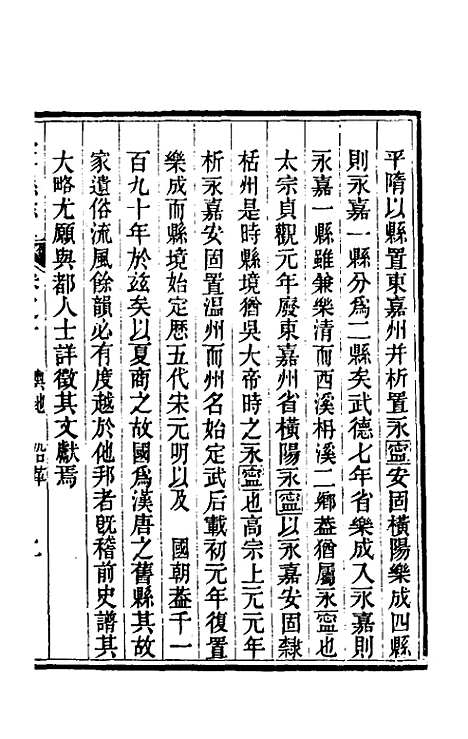 平隋以縣置東嘉州并析置永寍安固橫陽樂成四縣
則永嘉一縣分爲二縣矣武德七年省樂成入永嘉則
永嘉一縣雖兼樂清而西溪枏溪二鄉葢猶屬永寍也
太宗貞觀元年廢東嘉州省橫陽永寍以永嘉安固隸
栝州是時縣境猶吳大帝時之永寍也高宗上元元年
析永嘉安固置温州而州名始定武后載初元年復置
樂成而縣境始定歷五代宋元明以及　國朝葢千一
百九十年於茲矣以夏商之故國爲漢唐之舊縣其故
家遺俗流風餘韻必有度越於他邦者旣稽前史譜其
大略尤願與都人士詳徵其文獻焉
輿地　沿革